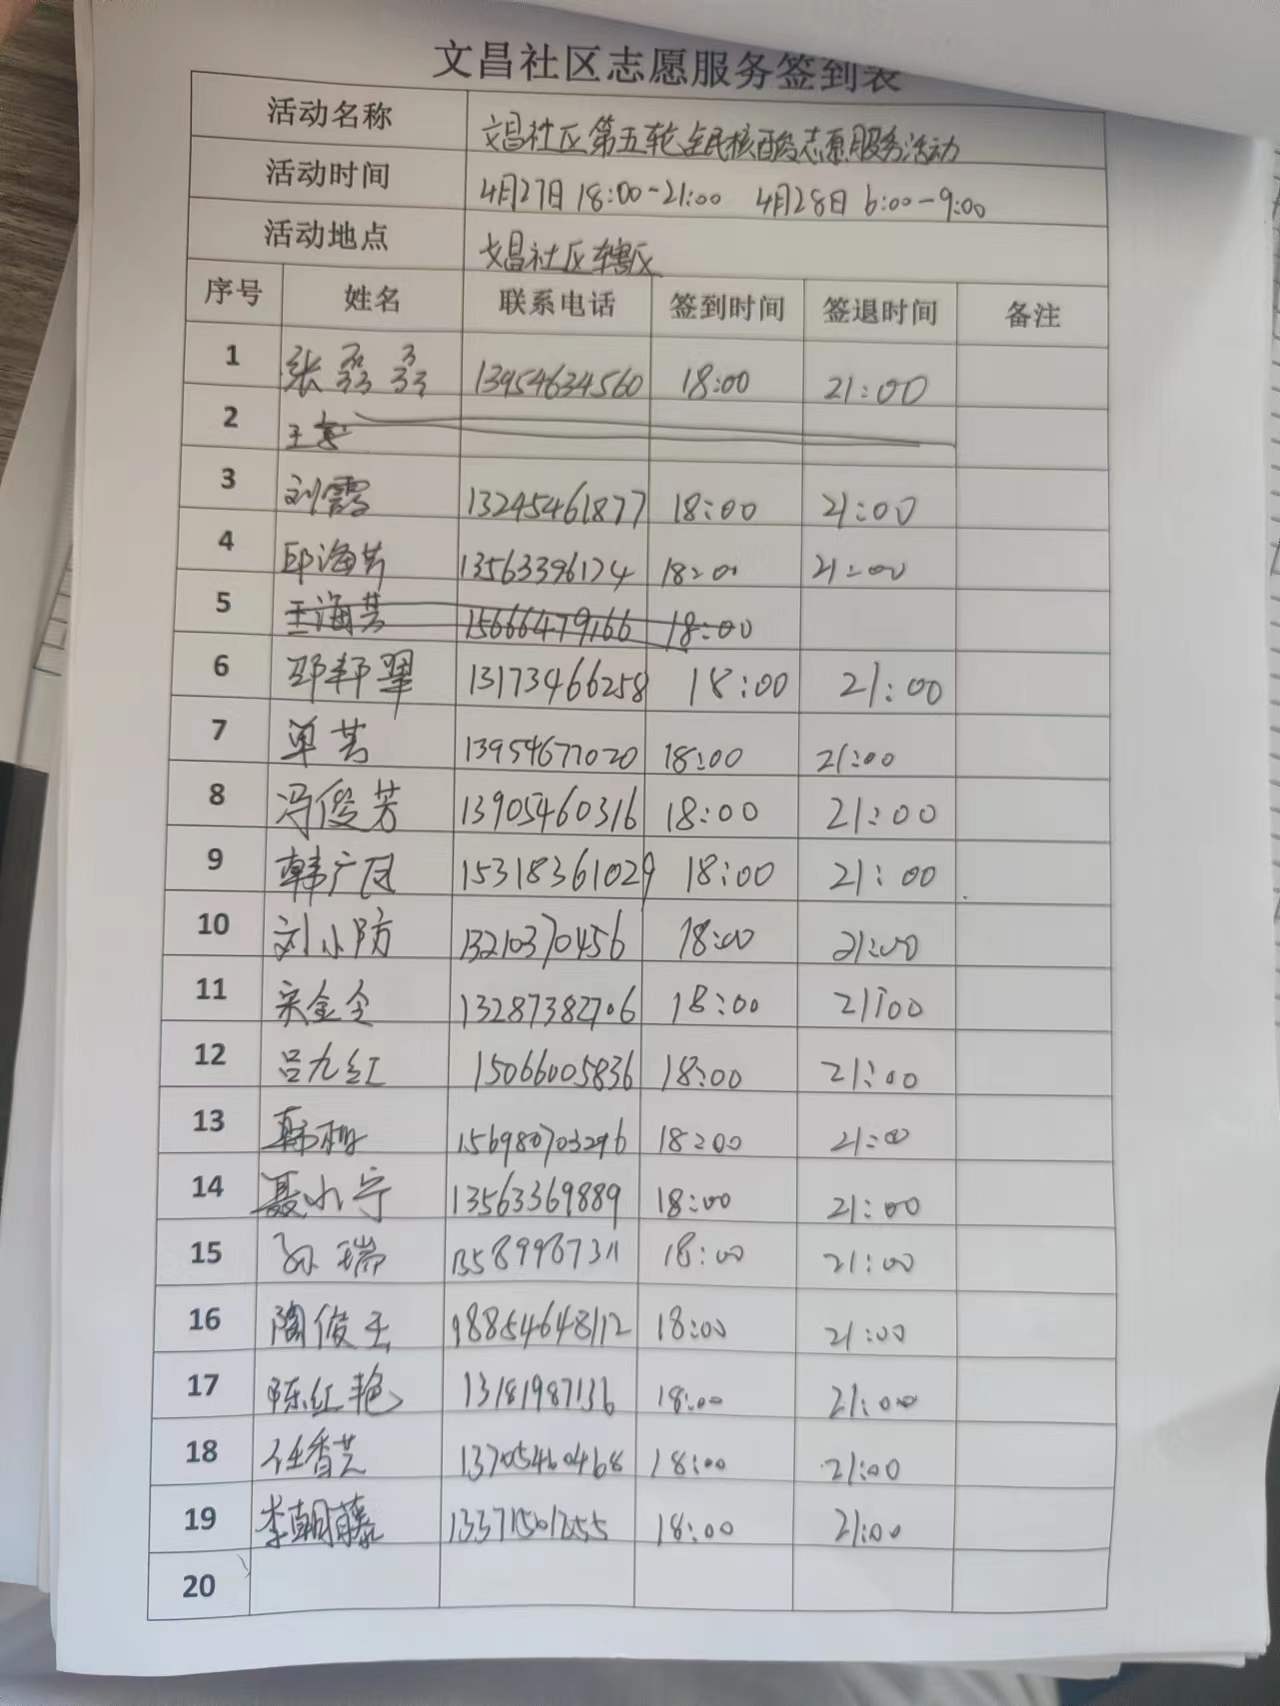 文昌社区志愿服务签到表
活动名称 文昌社区第五轮全民核酸志愿服务活动
活动时间 4月27日 18:00-21:00 4月28日 6:00-9:00
活动地点 文昌社区辖区
序号 姓名 联系电话 签到时间 签退时间 备注
1 张磊磊 13954634560 18:00 21:00
2 王
3 刘霞 13245461877 18:00 21:00
4 邱海芳 13563396124 18:00 21:00
5 王海芳 15666479166 18:00
6 邵邦翠 13173466258 18:00 21:00
7 单芳 13954677020 18:00 21:00
8 冯俊芳 13905460316 18:00 21:00
9 韩广 15318361029 18:00 21:00
10 刘小防 13210370456 18:00 21:00
11 宋金全 13287382706 18:00 21:00
12 吕九红 15066005836 18:00 21:00
13 韩 156980703296 18:00 21:00
14 聂小宁 13563369889 18:00 21:00
15 孙瑞 13589987311 18:00 21:00
16 陶俊玉 18:00 21:00
17 陈红艳 13181987136 18:00 21:00
18 任香芝 13705460468 18:00 21:00
19 李朝藤 18:00 21:00
20